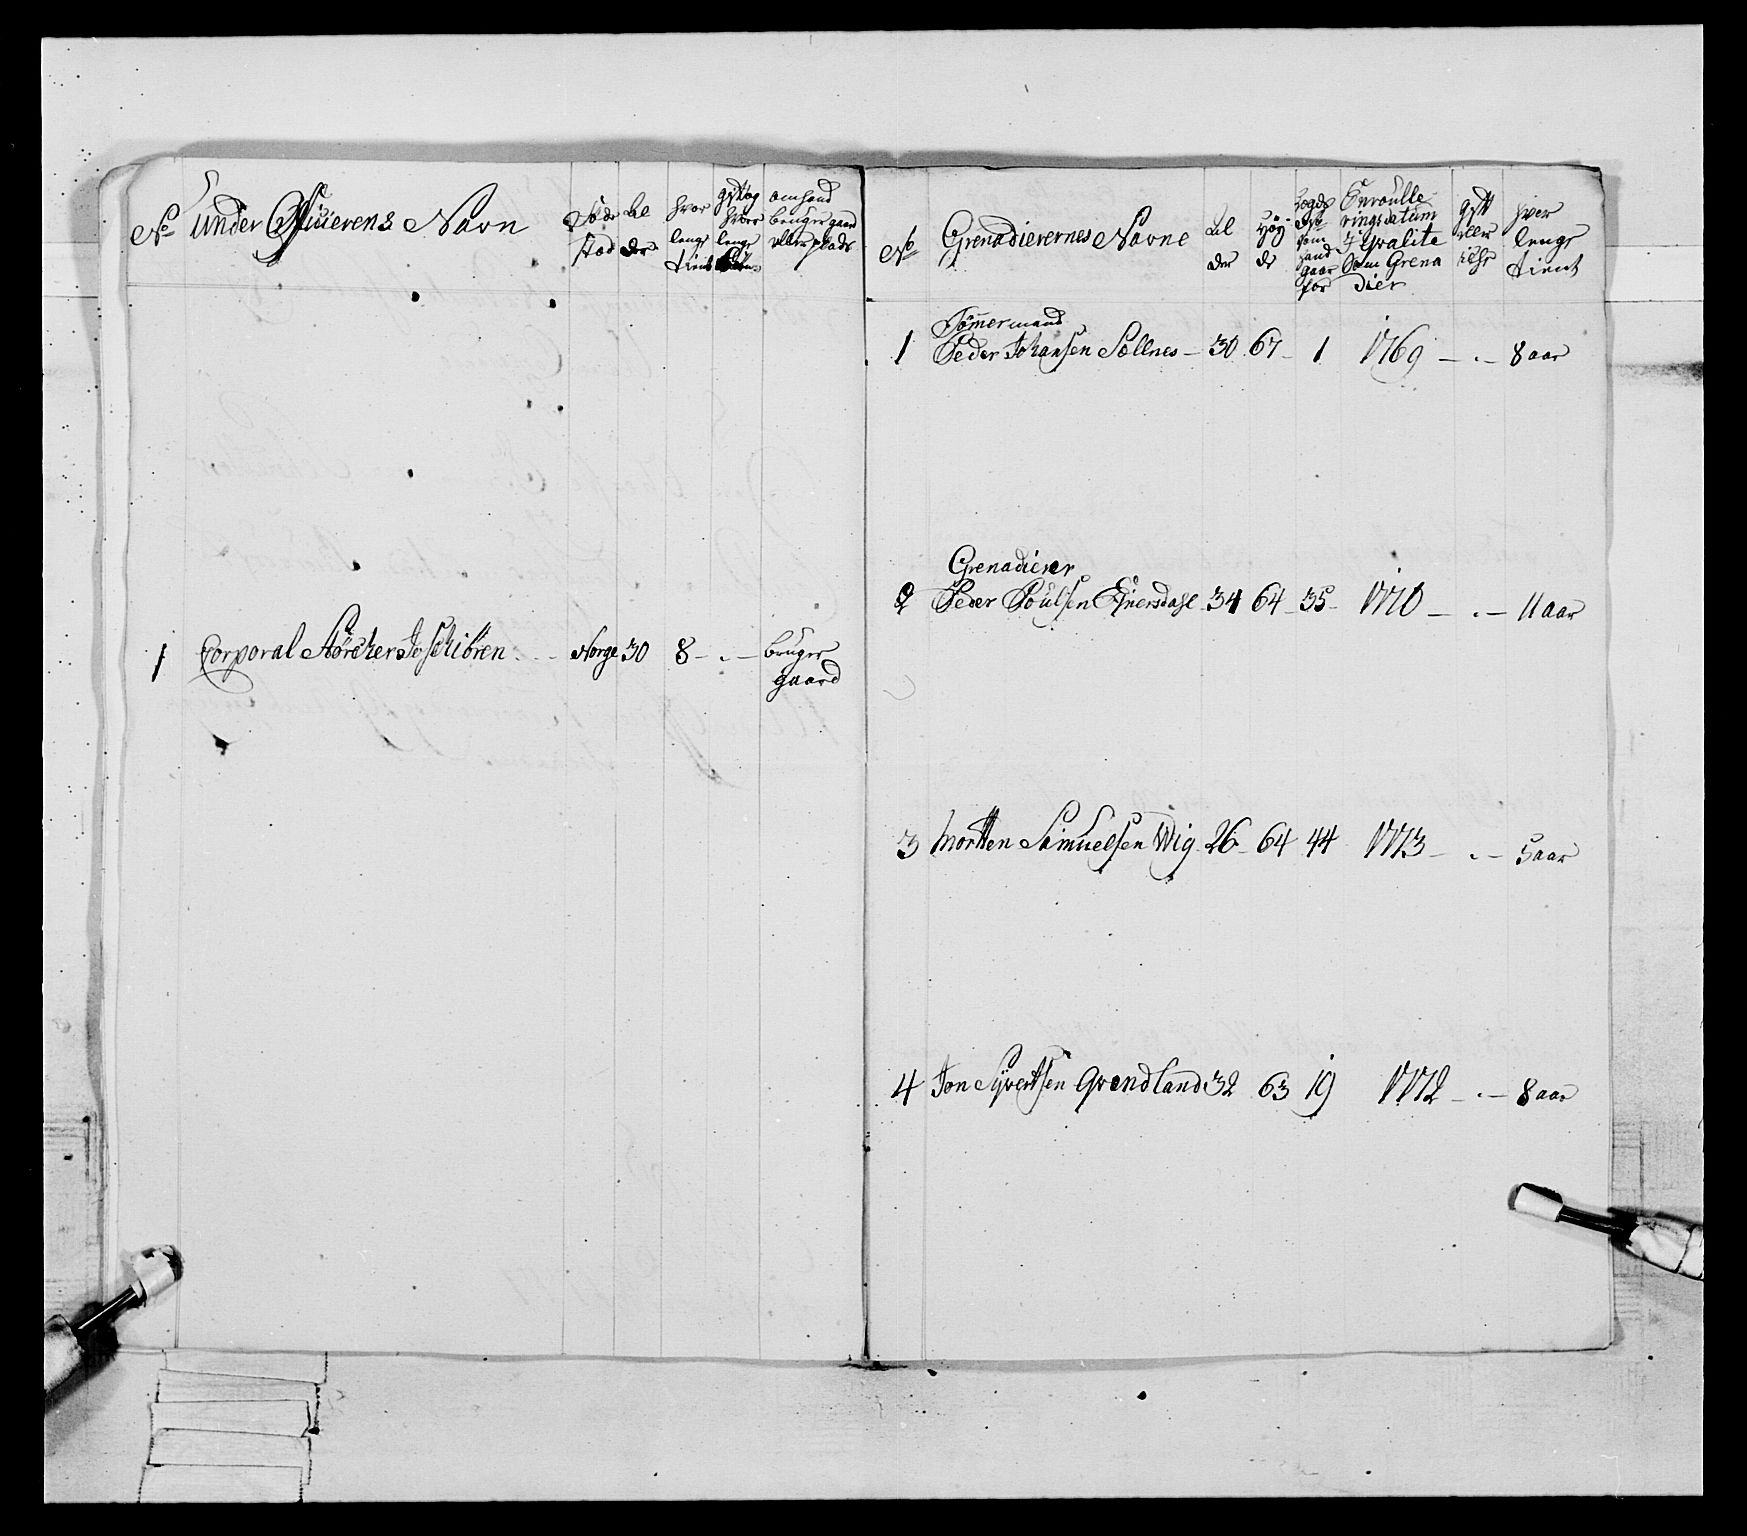 No under Officierens Navn
Føde
stæd
Al
der
hvor
lenge
tient
gift og
hvor
lenge
om hand
bruger gaard
eller plads
1 Corporal Størcker Schiören Norge 30 8 - . - bruger
gaard
No Grenadierernes Navne
Al
der
Høy
de
Lægds
som
hand
gaar
for
Enroulle
rings datum
I qvalite
som Grena
dier
gift
eller
ikke
hvor
lenge
tient
Tømermand
1 Peder Johansen Sællnes - 30 67 - 1 1769 - . - 8 aar
Grenadierer
2 Peder Poulsen 34 64 35 - 1770 - . - 11 aar
3 Mortten Samuelsen Wig 26 64 44 1773 - . - 5 aar
4 Jon Syvertsen Qvendland 32 63 19 1772 - . - 8 aar